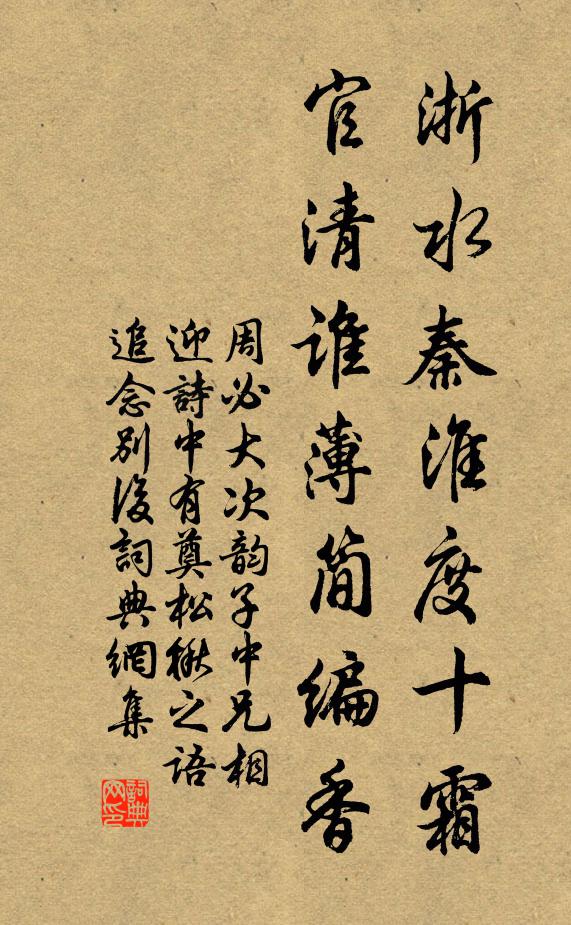 浙水秦淮度十霜
官清谁薄简编香
周必大次韵子中兄相
迎詩中有奠松楸之语
追念别後詞典網集
詞典网印